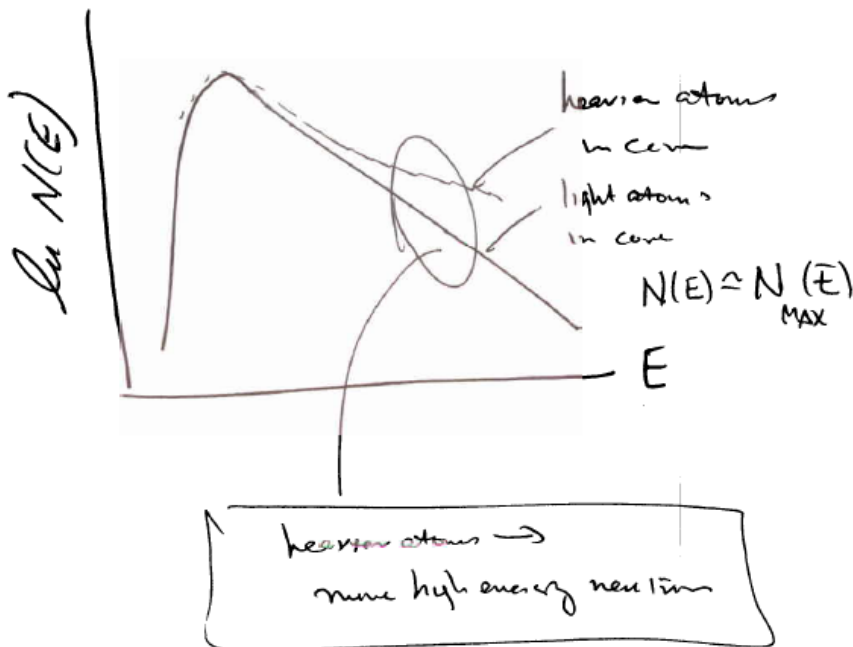 ln N(E)
heavier atoms
in core
light atoms
in core
N(E) ≃ N (E)
MAX
E
heavier atoms →
more high energy neutrons